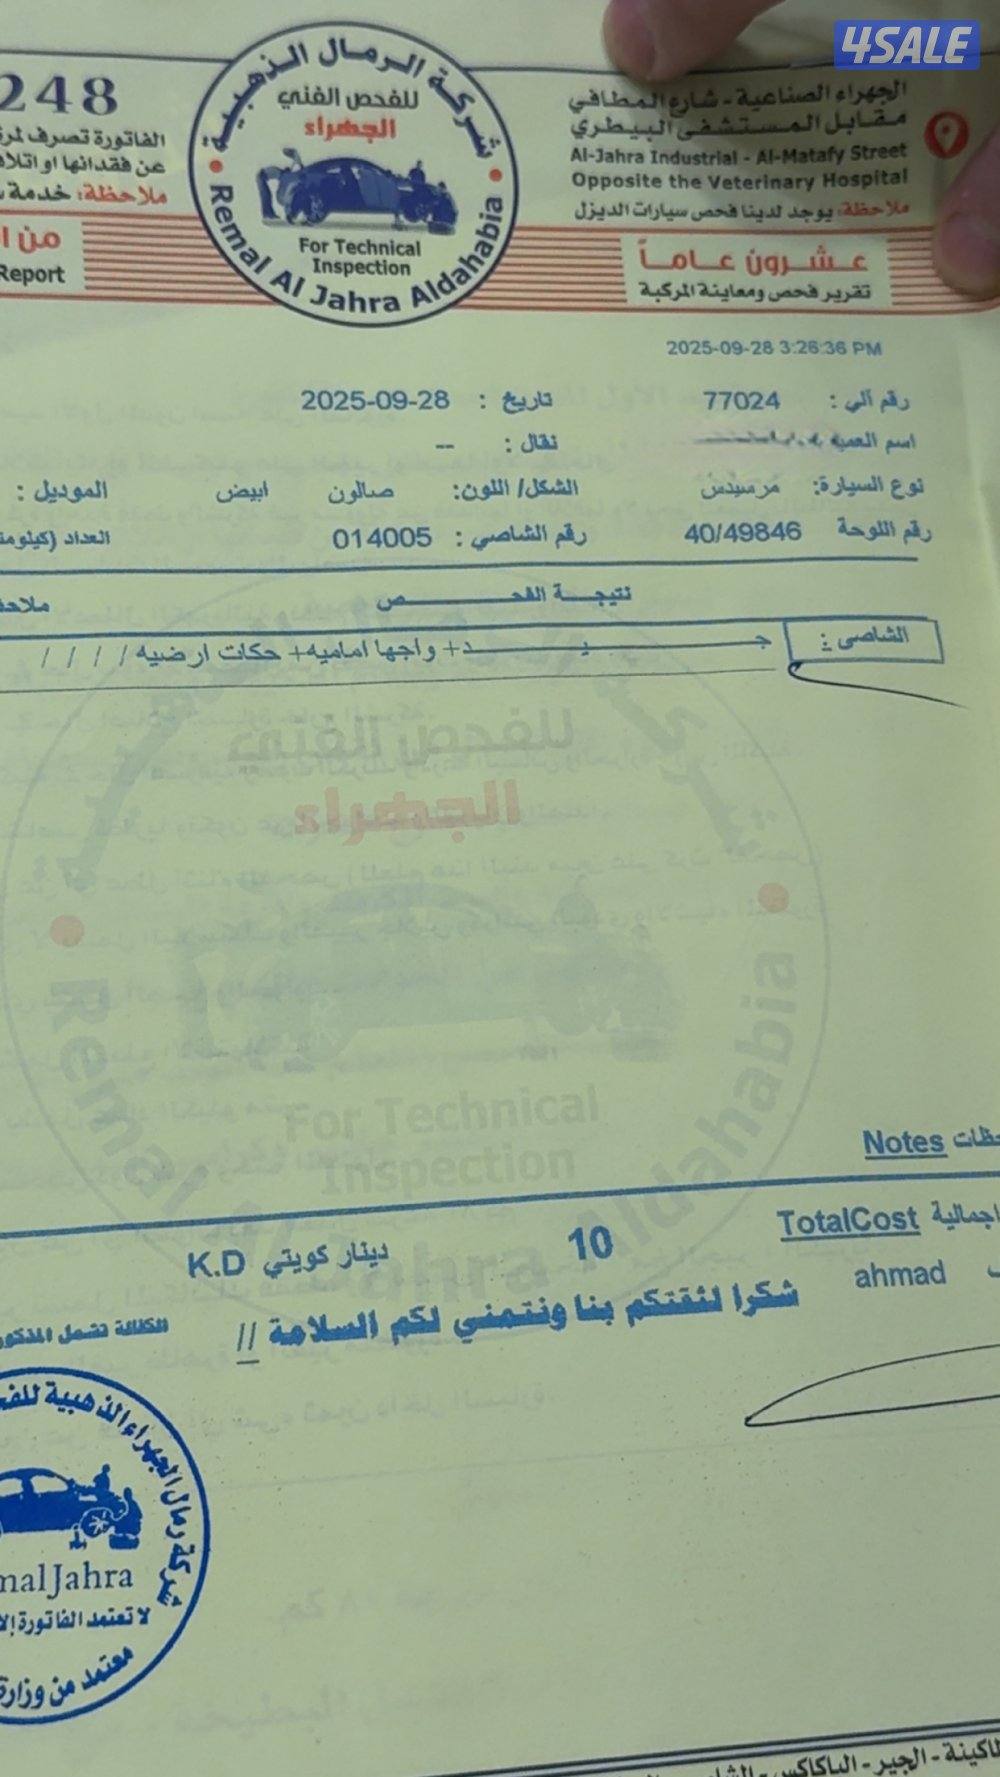 4SALE
248
الفاتورة تصرف لمرة
عن فقدانها او اتلاف
ملاحظة: خدمة
شركة الرمال الذهبية
للفحص الفني
الجهراء
For Technical
Inspection
Remal Al Jahra Aldahabia
الجهراء الصناعية - شارع المطافي
مقابل المستشفى البيطري
Al-Jahra Industrial - Al-Matafy Street
Opposite the Veterinary Hospital
ملاحظة: يوجد لدينا فحص سيارات الديزل
عشرون عاماً
تقرير فحص ومعاينة المركبة
من
Report
2025-09-28 3:26:36 PM
رقم آلي : 77024 تاريخ : 2025-09-28
اسم العميل نقال : --
نوع السيارة: مرسيدس الشكل/ اللون: صالون ابيض الموديل :
رقم اللوحة 40/49846 رقم الشاصي : 014005 العداد (كيلومت
نتيجة الفحص
الشاصي : جيد+ واجها اماميه+ حكات ارضيه / / / /
للفحص الفني
الجهراء
For Technical
Inspection
Remal Al Jahra Aldahabia
Notes
TotalCost اجمالية
10 دينار كويتي K.D
ahmad
شكرا لثقتكم بنا ونتمني لكم السلامة //
الكفالة تشمل المذكور
شركة رمال الجهراء الذهبية للفح
mal Jahra
لا تعتمد الفاتورة إلا
معتمد من وزارة
- الجير - الباكاكس -